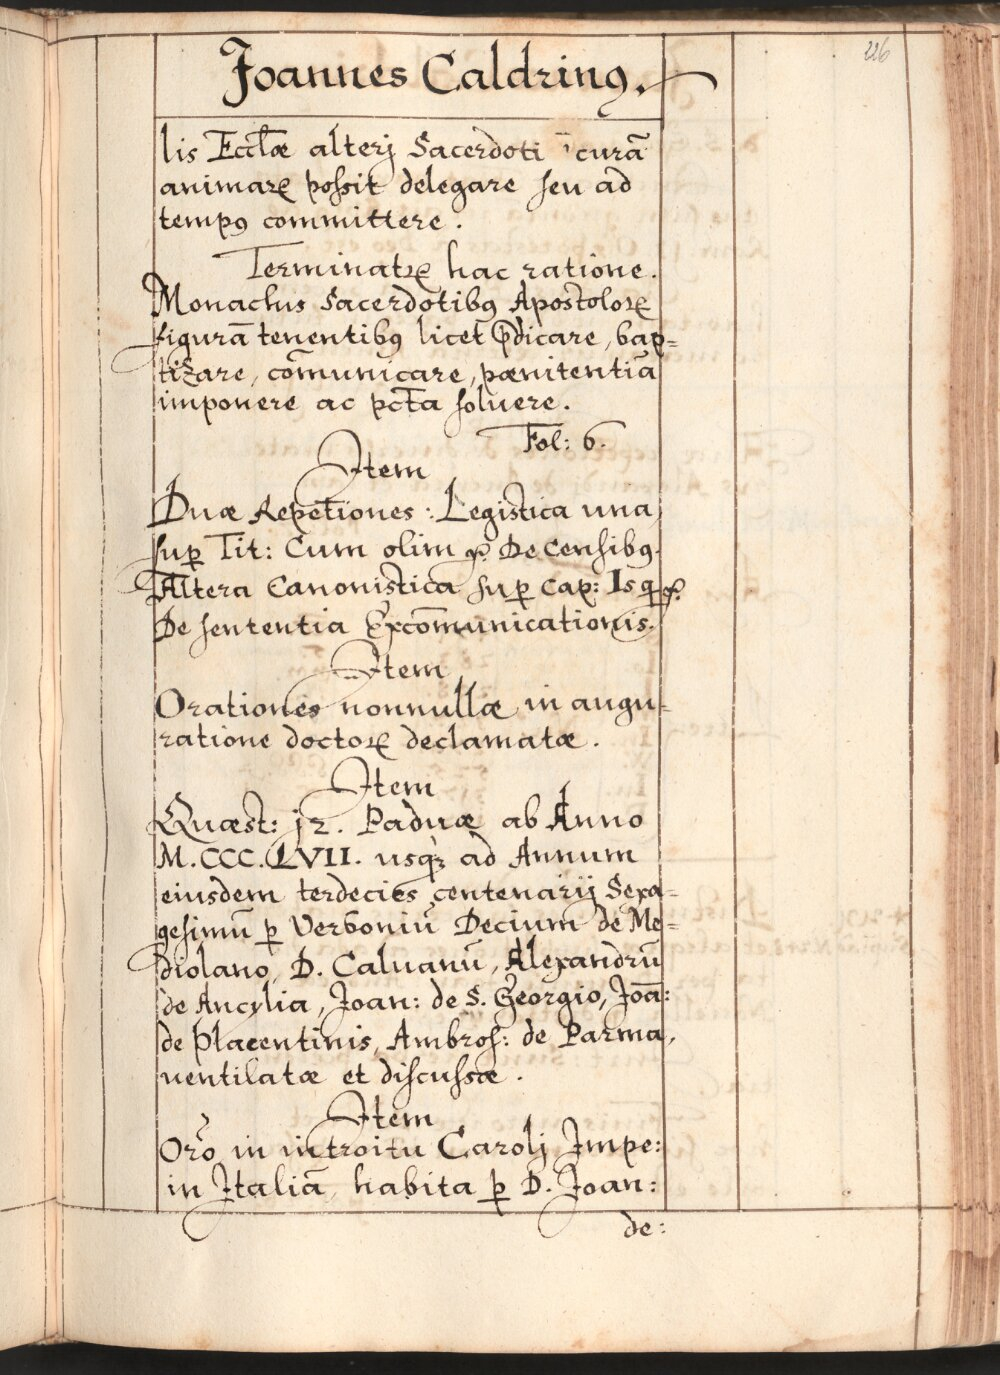 226
Joannes Caldrinꝯ.
lis Eccl̃æ alterj Sacerdoti curã
animarꝝ possit delegare seu ad
tempꝯ committere.
Terminatꝝ hac ratione.
Monachus Sacerdotibꝯ Apostolorꝝ
figurã tenentibꝯ licet p̃dicare, bap=
tizare, cõmunicare, pænitentiã
imponere ac pctã soluere.
Fol: 6.
Item
Duæ Repetiones: Legistica una,
suꝑ Tit: Cum olim De Censibꝯ.
Altera Canonistica suꝑ Cap: Is q
De sententia Excõmunicationis.
Item
Orationes nonnullæ in augu=
ratione doctorꝝ declamatæ.
Item
Quæst: 12. Paduæ ab Anno
M.CCC.LVII. usqꝫ ad Annum
eiusdem terdecies centenarij Sexa=
gesimũ ꝑ Verboniũ Decium de Me=
diolano, D. Caluanũ, Alexandrũ
de Ancylia, Joan: de S. Georgio, Joã:
de Placentinis, Ambros: de Parma,
uentilatæ et discussæ.
Item
Orõ in introitu Carolj Impe:
in Italiã, habita ꝑ D. Joan:
de: